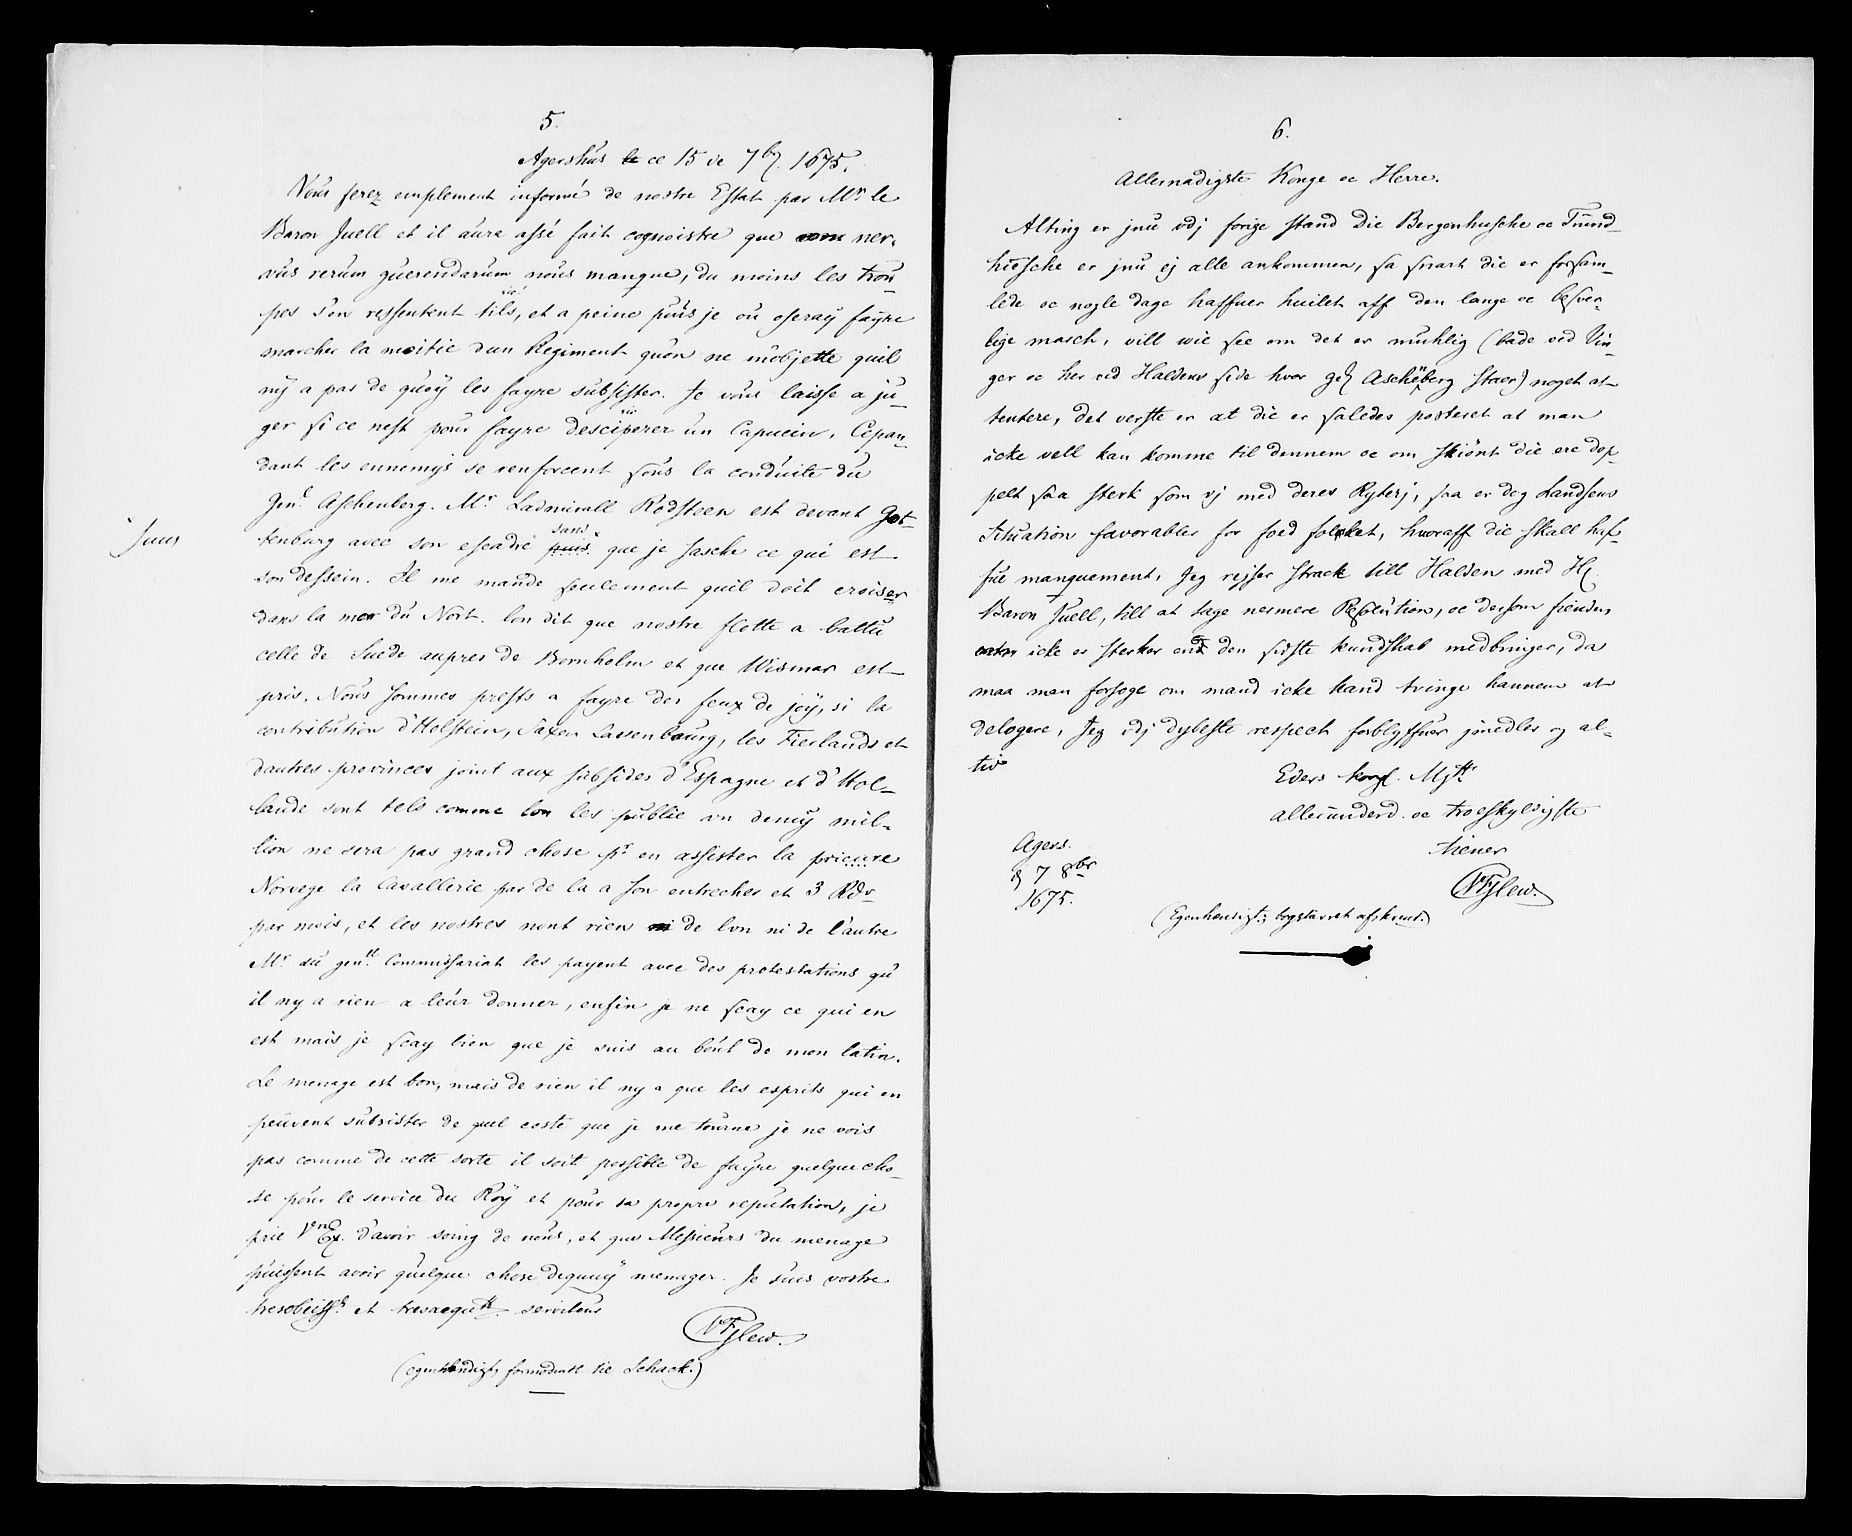 5.
Agershus ce 15 de 7b. 1675.
Vous serez emplement informé de nostre Estat par Mr le
Baron Juell et il aura assé fait cognoistre que ner-
vus rerum guerendarum nous manque, du moins les trou-
sic!
pes s'en ressentent tils, et a peine puis je ou oseray fayre
marcher la moitie dun Regiment quon ne m'objette quil
ny a pas de quoy les fayre subsister. Je vous laisse a ju-
sic
ger si ce nest pour fayre desciperer un Capucin. Cepan-
dant les ennemijs se renforcent sous la conduite du
Genl Aschenberg. Mr Ladmirall Rodsteen est devant Got-
sans
tenburg avec son escadre puis que je sasche ce qui est
son dessein. Il me mande seulement quil doit croiser
dans la mer du Nort. lon dit que nostre flotte a battu
celle de Suede aupres de Bornholm et que Wismar est
pris. Nous sommes prests a fayre des feux de joÿ, si la
contribution d'Holstein, Saxen Lassenbourg, les Fierlands et
dautres provinces joint aux subsides d'Espagne et d'Hol-
lande sont tels comme lon les publie un demij mil-
lion ne sera pas grand chose pr en assister la
Norvege la Cavallerie par de la a son entrecher et 3 Rdr
par mois, et les nostres nont rien ni de lun ni de l'autre
Mr du genll Commissariat les payent avec des protestations qu
il ny a rien a leur donner, enfin je ne scay ce qui en
est mais je scay bien que je suis au bout de mon latin.
Le menage est bon, mais de rien il ny a que les esprits qui en
peuvent subsister de quel costé que je me tourne je ne vois
pas comme de cette sorte il soit possible de fayre quelque cho-
se pour le service du Roÿ et pour sa propre reputation, je
prie V Ex. d'avoir soing de nous, et que Messieurs du menage
puissent avoir quelque chose dequoy menager. Je suis vostre
tresobeisst et serviteur
(egenhændigt, formodentl til Schack.)
6.
Allernadigste Konge oc Herre.
Alting er jnu vdj forige stand Die Bergenhusche oc Trund-
hiesche er jnu ej alle ankommen, sa snart die er forsam-
lede oc nogle dage haffuer huilet aff den lange oc besver-
lige masch, vill wie see om det er muhlig (bade ved Vin-
ger oc her ved Haldens side hvor Ascheberg staer) noget at
tentere, det verste er at die er saledes posteret at man
icke vell kan komme til dennem oc om skiönt die ere dop-
pelt saa sterk som vj med deres Rytterj, saa er dog Landsens
Situation favorabler for foed folcket, huoraff die skall haf-
fue manquement, Jeg rejser strack till Halden med H.
Baron Juell, till at tage nermere Resolution, oc dersom fienden
icke er sterker end den sidste kundskab medbringer, da
maa man forsoge om mand icke kand tvinge hannem at
delogere, Jeg vdj dybeste respect forblyffuer jmedler og al-
tid
Eders kongl. Mjtt
allerunderd. oc troeskyldigste
tiener
Agers.
d 7 8br
1675.
(Egenhændigt; bogstavret afskrevet.)